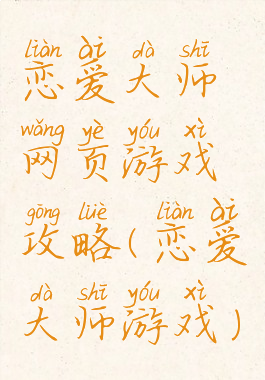 liàn ài dà shī
恋爱大师
wǎng yè yóu xì
网页游戏
gōng lüè liàn ài
攻略(恋爱
dà shī yóu xì
大师游戏)